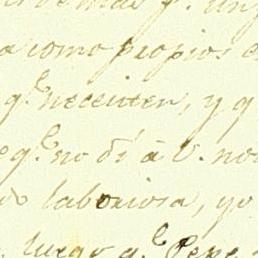 a como propios
q.e necesiten, y q
q.e no dé á V. no
laboriosa, yo
luego q.e Pepe